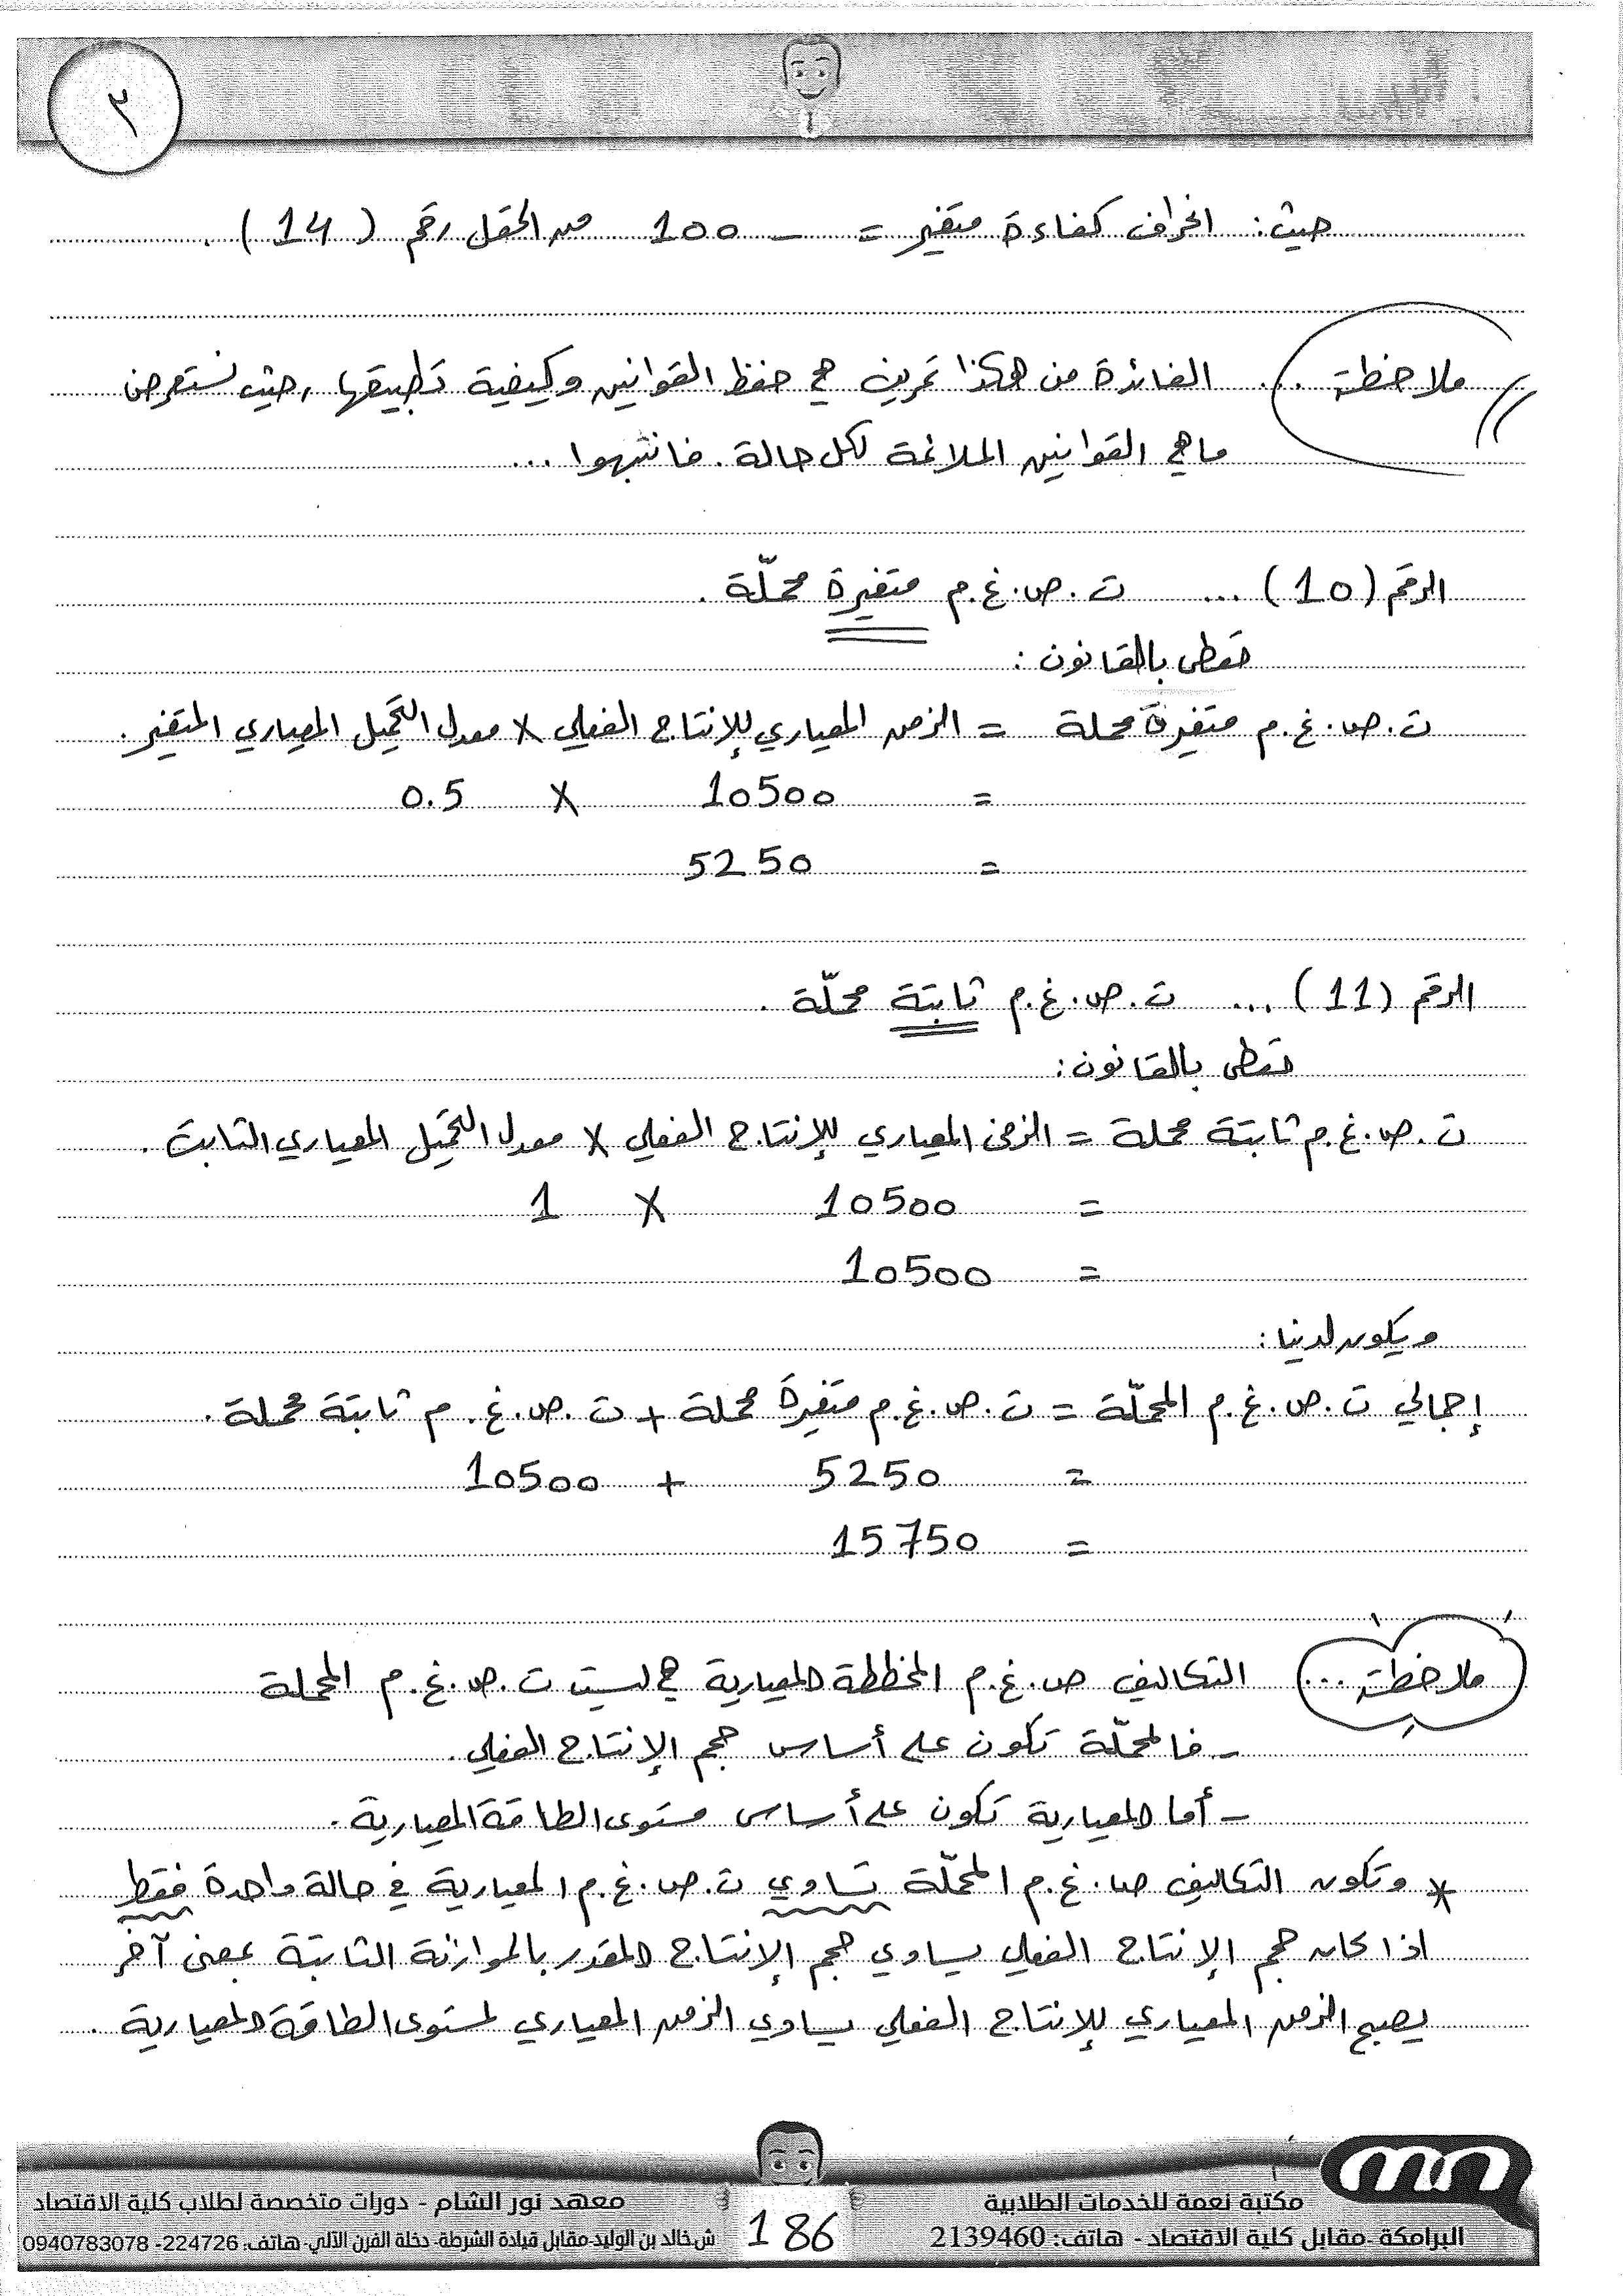 ٢
حيث: انحراف كفاءة متغير = - 100 من الحقل رقم (14).
ملاحظة ... الفائدة من هكذا تمرين هي حفظ القوانين وكيفية تطبيقها، حيث نستعرض
ما هي القوانين الملائمة لكل حالة. فانتبهوا ...
الرقم (10) ... ت.ص.غ.م متغيرة محمّلة.
تعطى بالقانون:
ت.ص.غ.م متغيرة محملة = الزمن المعياري للإنتاج الفعلي × معدل التحميل المعياري المتغير.
= 10500 × 0.5
= 5250
الرقم (11) ... ت.ص.غ.م ثابتة محمّلة.
تعطى بالقانون:
ت.ص.غ.م ثابتة محملة = الزمن المعياري للإنتاج الفعلي × معدل التحميل المعياري الثابت.
= 10500 × 1
= 10500
ويكون لدينا:
إجمالي ت.ص.غ.م المحمّلة = ت.ص.غ.م متغيرة محملة + ت.ص.غ.م ثابتة محملة.
= 5250 + 10500
= 15750
ملاحظة ... التكاليف ص.غ.م المخططة المعيارية هي ليست ت.ص.غ.م المحملة
- فالمحمّلة تكون على أساس حجم الإنتاج الفعلي.
- أما المعيارية تكون على أساس مستوى الطاقة المعيارية.
* وتكون التكاليف ص.غ.م المحمّلة تساوي ت.ص.غ.م المعيارية في حالة واحدة فقط
اذا كان حجم الإنتاج الفعلي يساوي حجم الإنتاج المقدر بالموازنة الثابتة بمعنى آخر
يصبح الزمن المعياري للإنتاج الفعلي يساوي الزمن المعياري لمستوى الطاقة المعيارية.
مكتبة نعمة للخدمات الطلابية
البرامكة -مقابل كلية الاقتصاد - هاتف: 2139460
186
معهد نور الشام - دورات متخصصة لطلاب كلية الاقتصاد
ش.خالد بن الوليد-مقابل قيادة الشرطة- دخلة الفرن الآلي- هاتف: 224726- 0940783078